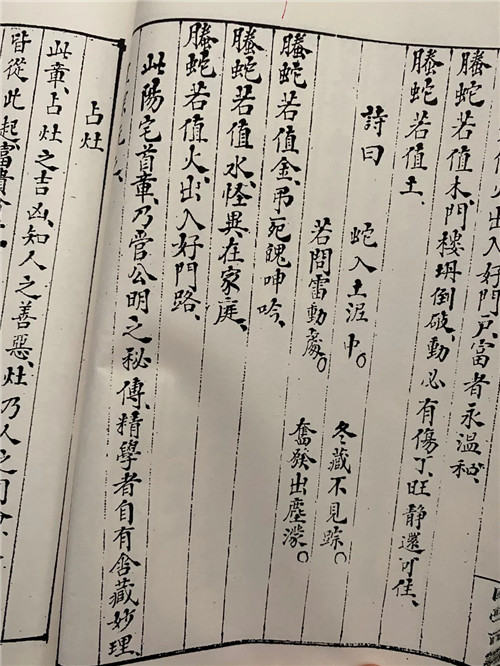 火出入好門戶、富者永溫和、
螣蛇若值木、門樓坍倒破、動必有傷丁、旺靜還可住、
螣蛇若值土、
詩曰
蛇入土泥中。冬藏不見踪。
若問雷動處。奮發出塵濛。
螣蛇若值金、弔死魄呻吟、
螣蛇若值水、怪異在家庭、
螣蛇若值火、出入好門路、
此陽宅首章、乃管公明之秘傳、精學者自有含藏妙理、
占灶
此章、占灶之吉凶、知人之善惡、灶乃人之司命
皆從此起、富貴